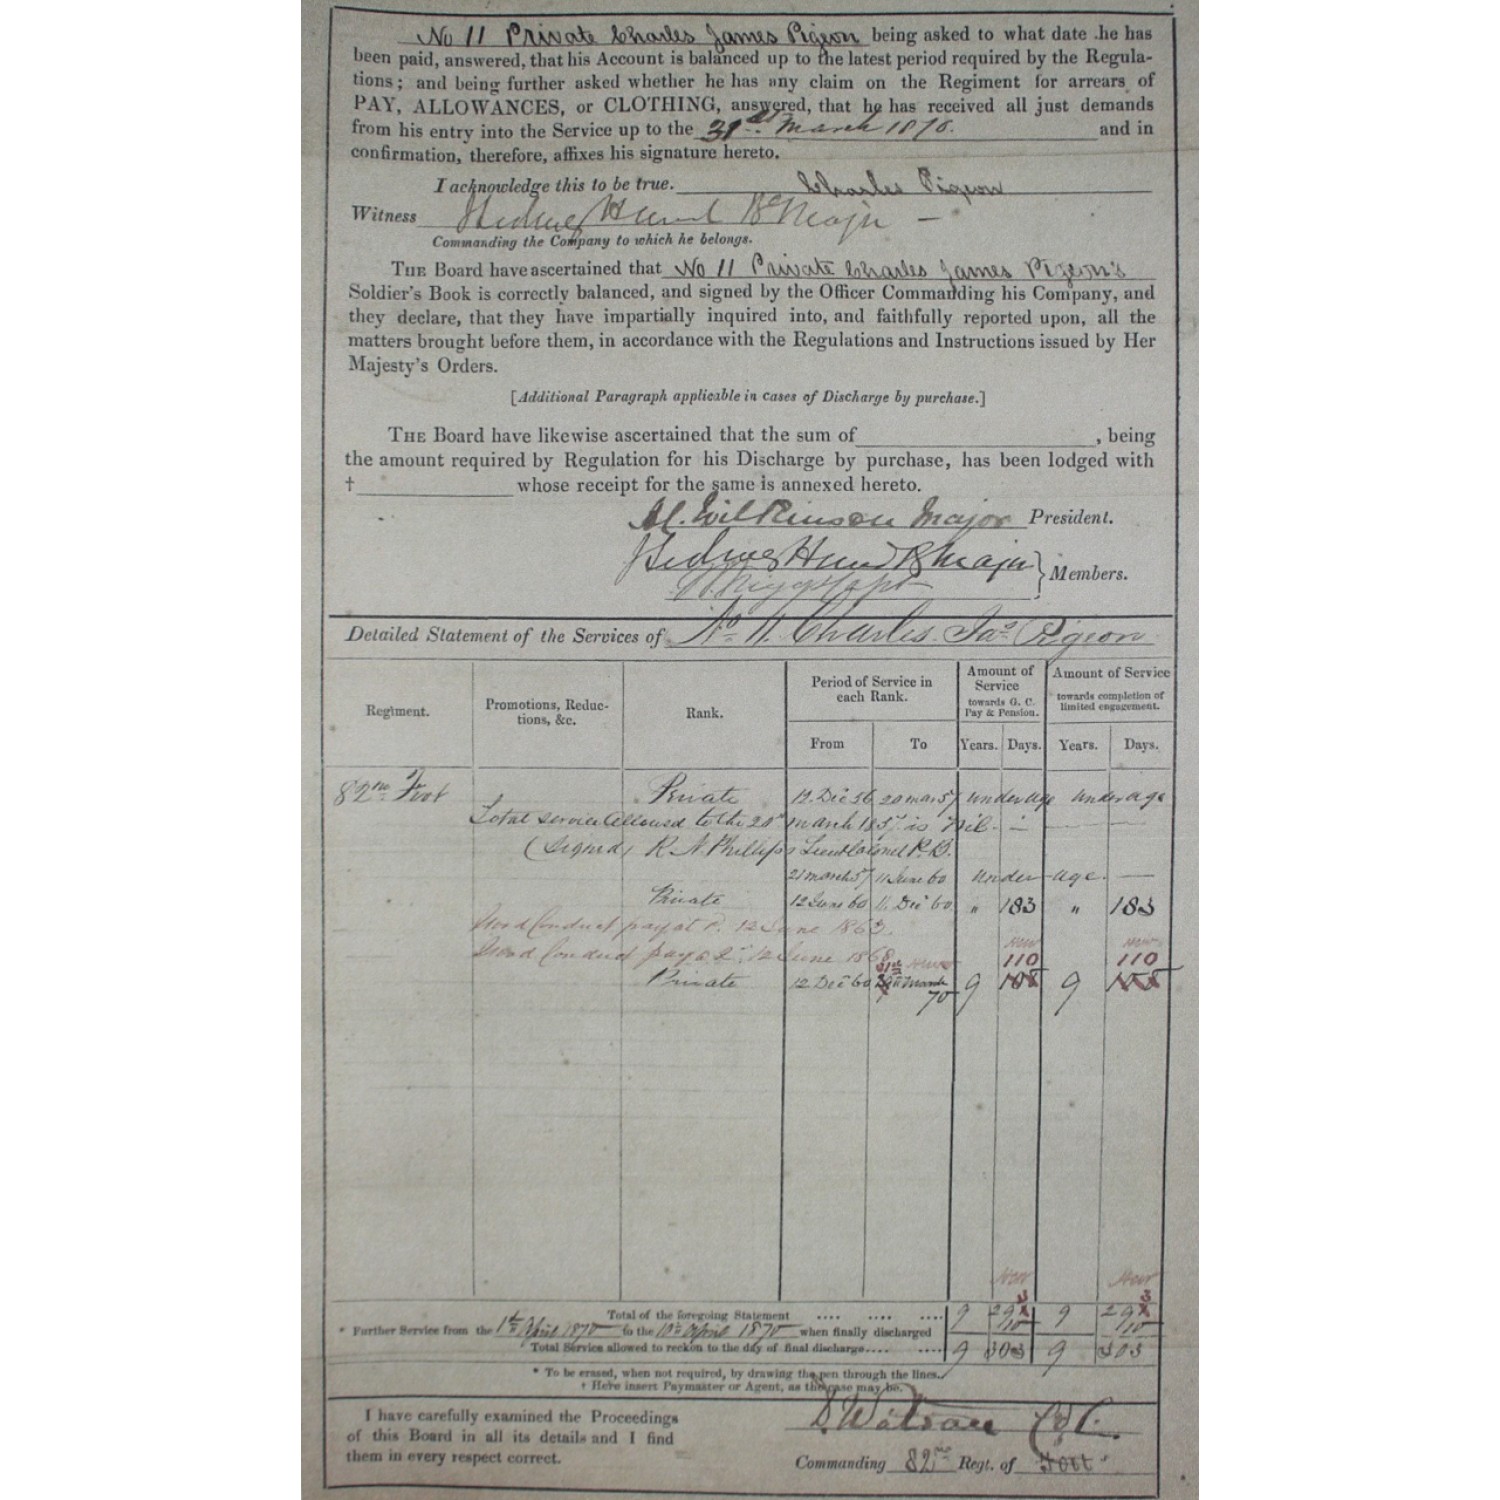 No 11 Private Charles James Pigeon being asked to what date he has
been paid, answered, that his Account is balanced up to the latest period required by the Regula-
tions; and being further asked whether he has any claim on the Regiment for arrears of
PAY, ALLOWANCES, or CLOTHING, answered, that he has received all just demands
from his entry into the Service up to the 31st March 1870. and in
confirmation, therefore, affixes his signature hereto.
I acknowledge this to be true. Charles Pigeon
Witness Sidney Bt Major
Commanding the Company to which he belongs.
THE Board have ascertained that No 11 Private Charles James Pigeon's
Soldier's Book is correctly balanced, and signed by the Officer Commanding his Company, and
they declare, that they have impartially inquired into, and faithfully reported upon, all the
matters brought before them, in accordance with the Regulations and Instructions issued by Her
Majesty's Orders.
[Additional Paragraph applicable in cases of Discharge by purchase.]
THE Board have likewise ascertained that the sum of , being
the amount required by Regulation for his Discharge by purchase, has been lodged with
† whose receipt for the same is annexed hereto.
Wilkinson Major President.
Sidney Bt Major
Members.
Capt
Detailed Statement of the Services of No 11. Charles Jas Pigeon
Regiment. Promotions, Reduc-tions, &c. Rank. Period of Service in each Rank. Amount of Service towards G. C. Pay & Pension. Amount of Service towards completion of limited engagement.
From To Years. Days. Years. Days.
82nd Foot Private 12 Dec 56 20 Mar 57 under age under age
Total service allowed to the 20th March 1857 is Nil. —
(Signed) R. N. Phillips Lieut Colonel R. B.
21 March 57 11 June 60 under age. —
Private 12 June 60 11 Dec 60 " 183 " 183
Good Conduct pay at 1d. 12 June 1863.
Good Conduct pay @ 2d. 12 June 1868
110 110
Private 12 Dec 60 31st March 70 9 108 9 108
Total of the foregoing Statement .... .... .... 9 293 9 293
* Further Service from the 1st April 1870 to the 10th April 1870 when finally discharged 10 10
Total Service allowed to reckon to the day of final discharge.... .... 9 303 9 303
* To be erased, when not required, by drawing the pen through the lines.
† Here insert Paymaster or Agent, as the case may be.
I have carefully examined the Proceedings
of this Board in all its details and I find
them in every respect correct.
Watson Col.
Commanding 82nd Regt. of Foot